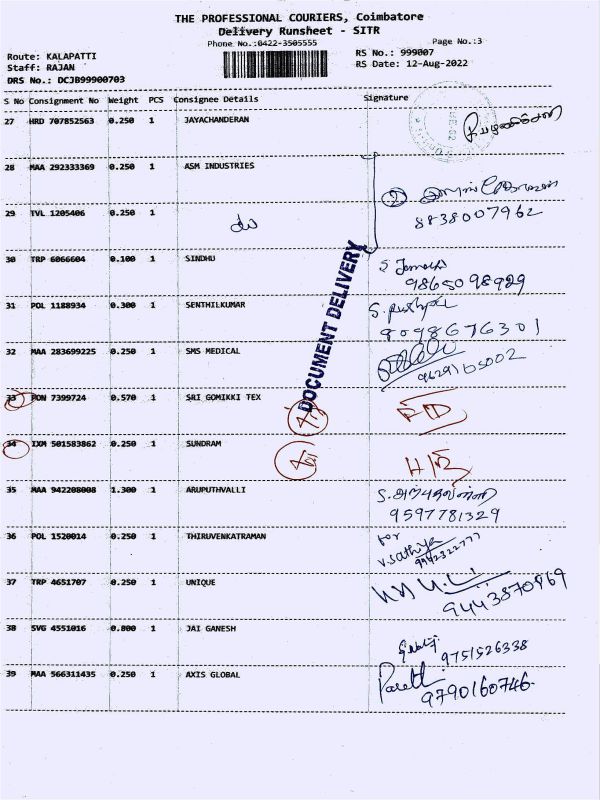 THE PROFESSIONAL COURIERS, Coimbatore
Delivery Runsheet - SITR
Phone No.:0422-3505555
Page No.:3
Route: KALAPATTI
Staff: RAJAN
DRS No.: DCJB99900703
RS No.: 999007
RS Date: 12-Aug-2022
S No Consignment No Weight PCS Consignee Details Signature
27 HRD 707852563 0.250 1 JAYACHANDERAN
28 MAA 292333369 0.250 1 ASM INDUSTRIES
29 TVL 1205406 0.250 1 do 8838007962
30 TRP 6066604 0.100 1 SINDHU
9865098929
31 POL 1188934 0.300 1 SENTHILKUMAR
9098676301
32 MAA 283699225 0.250 1 SMS MEDICAL
9629105002
DOCUMENT DELIVERY
33 PON 7399724 0.570 1 SRI GOMIKKI TEX
34 IXM 501583862 0.250 1 SUNDRAM
35 MAA 942208008 1.300 1 ARUPUTHVALLI
9597781329
36 POL 1520014 0.250 1 THIRUVENKATRAMAN for
V.Sathiya
9942322777
37 TRP 4651707 0.250 1 UNIQUE
9443870969
38 SVG 4551016 0.800 1 JAI GANESH
9751526338
39 MAA 566311435 0.250 1 AXIS GLOBAL
9790160746